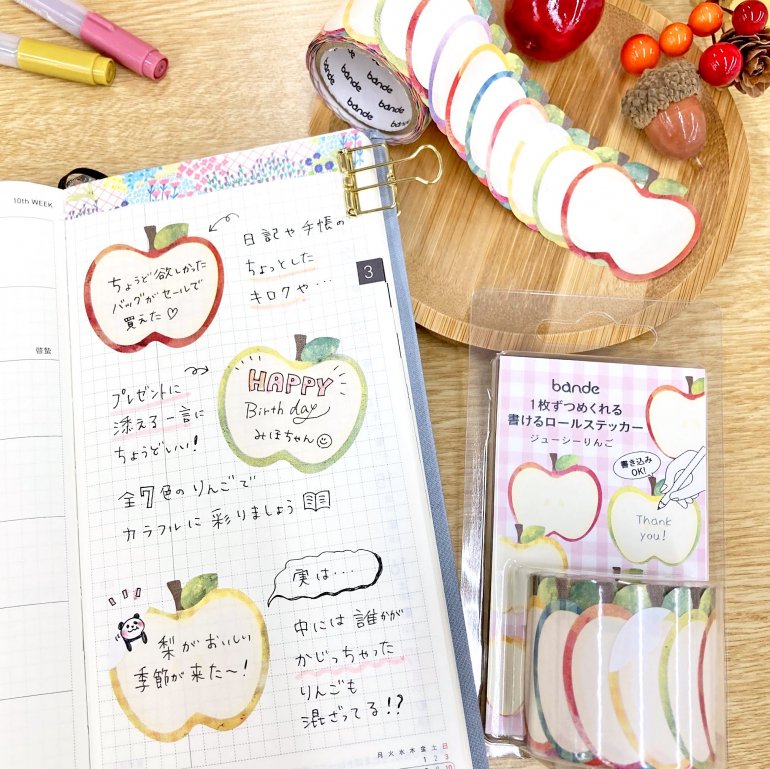 10th WEEK
啓蟄
3
日記や手帳の
ちょっとした
キロクや…
ちょうど欲しかった
バッグがセールで
買えた♡
プレゼントに
添える一言に
ちょうどいい!
HAPPY
Birthday
みほちゃん
全7色のりんごで
カラフルに彩りましょう
実は…
梨がおいしい
季節が来た〜!
中には誰かが
かじっちゃった
りんごも
混ざってる!?
月火水木金土日
1 2 3
10
bande
bande
bande
bande
bande
1枚ずつめくれる
書けるロールステッカー
ジューシーりんご
書き込み
OK!
Thank
you!